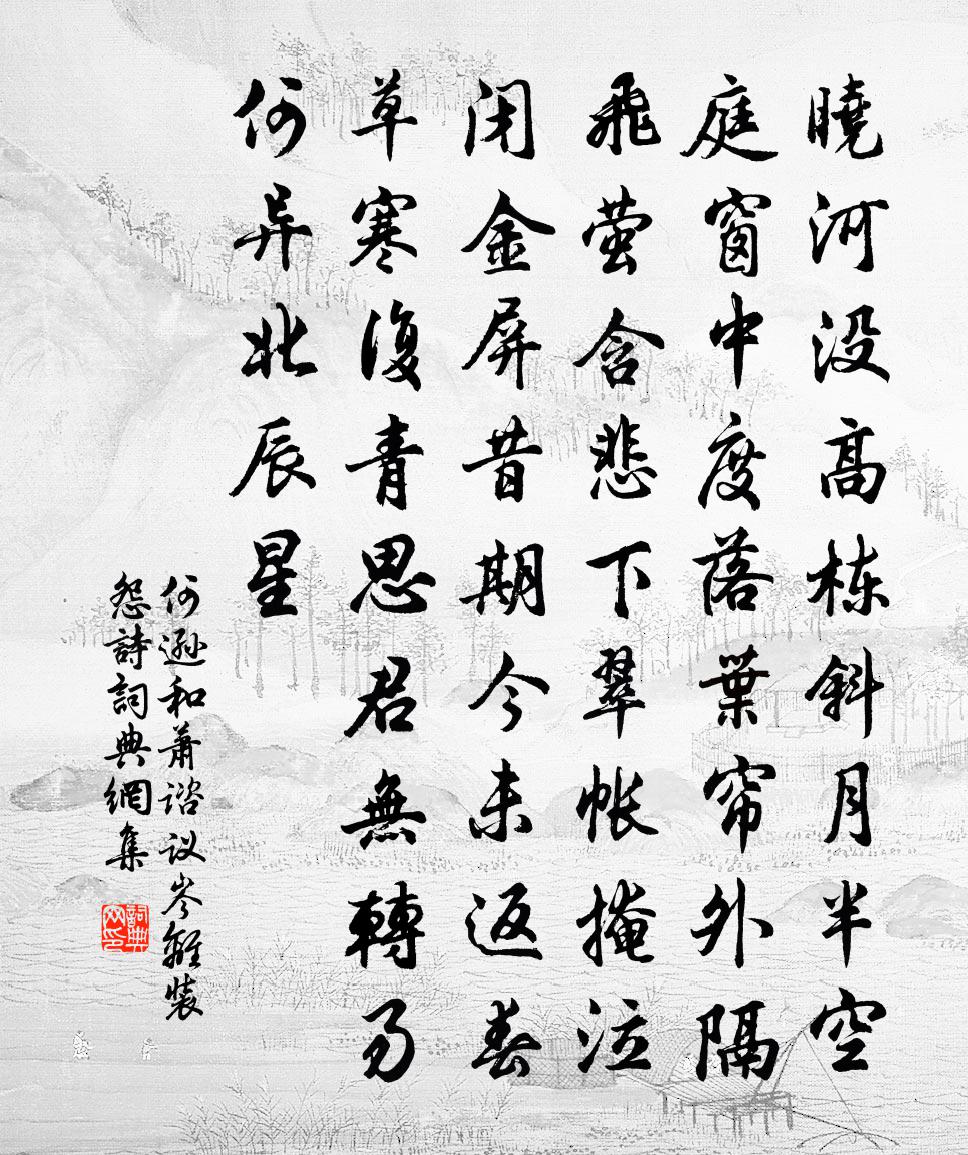 曉河没高栋斜月半空
庭窗中度落葉帘外隔
飛萤含悲下翠帐掩泣
闭金屏昔期今未返春
草寒復青思君無轉易
何异北辰星
何遜和蕭谘议岑離装
怨詩詞典網集
詞典网印